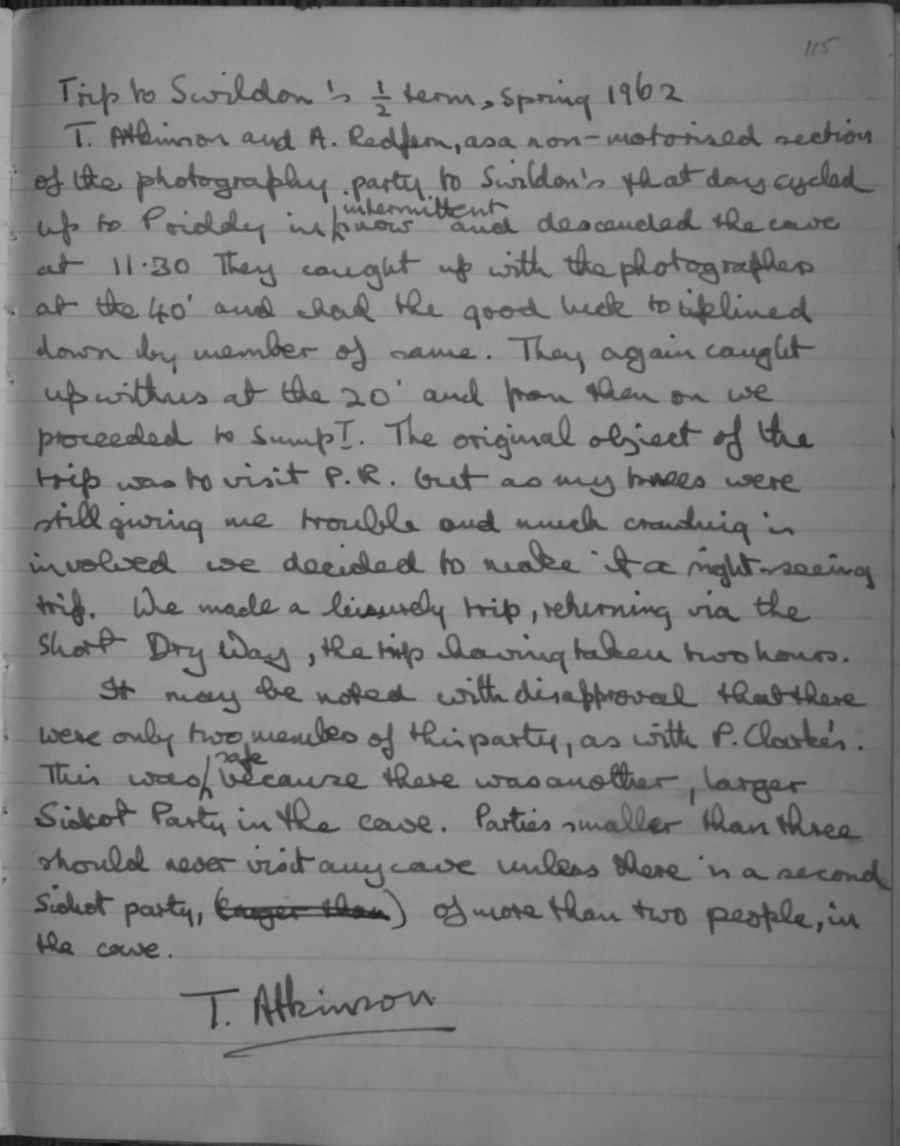 115
Trip to Swildon's ½ term, Spring 1962
T. Atkinson and A. Redfern, as a non-motorised section
of the photography party to Swildon's that day cycled
up to Priddy in intermittent snow and descended the cave
at 11.30 They caught up with the photographers
at the 40' and had the good luck to be lifelined
down by member of same. They again caught
up with us at the 20' and from then on we
proceeded to Sump I. The original object of the
trip was to visit P.R. but as my knees were
still giving me trouble and much crawling is
involved we decided to make it a sight-seeing
trip. We made a leisurely trip, returning via the
Short Dry Way, the trip having taken two hours.
It may be noted with disapproval that there
were only two members of this party, as with P. Clarke's.
This was safe because there was another, larger
Sidcot Party in the cave. Parties smaller than three
should never visit any cave unless there is a second
Sidcot party, (larger than) of more than two people, in
the cave.
T. Atkinson